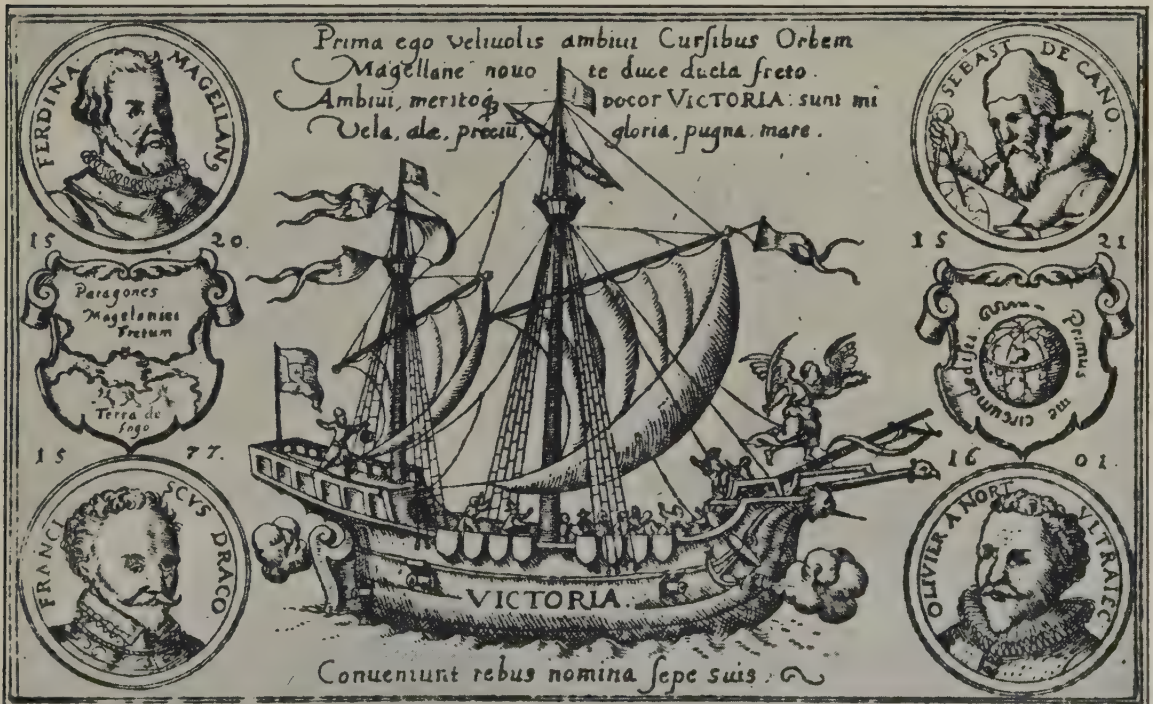 Prima ego veliuolis ambiui Curſibus Orbem
Magellane nouo te duce ducta freto.
Ambiui, meritoq́ꝫ vocor VICTORIA: sunt mi
Vela, alæ, preciũ, gloria, pugna, mare.
FERDINA MAGELLANꝰ
SEBAST DE CANO.
15 20.
15 21
Patagones
Magelanici
Fretum
Terra de
fogo
Primus
me
circumdediſti
15 77.
16 01.
FRANCISCVS DRACO
OLIVIER A NORT VLTRAIEC
VICTORIA.
Conueniunt rebus nomina ſepe suis.